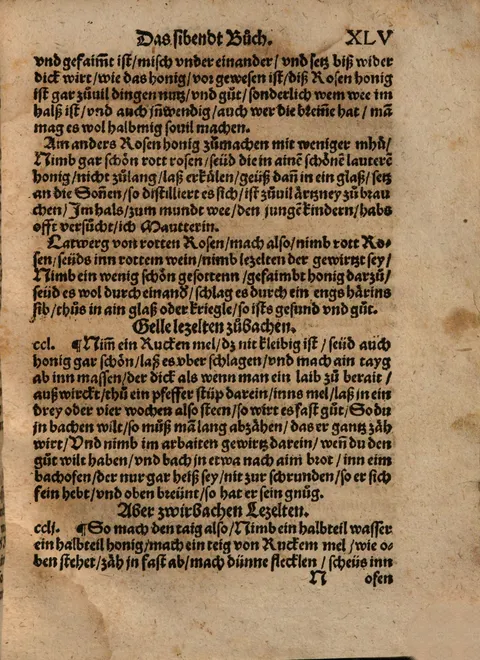 Das sibendt Bůch. XLV
vnd gefaimt ist/misch vnder einander/ vnd setz biß wider
dick wirt/wie das honig/vor gewesen ist/diß Rosen honig
ist gar zůuil dingen nutz/vnd gůt/sonderlich wem wee im
halß ist/vnd auch iñwendig/auch wer die breüne hat/ mã
mag es wol halbmig souil machen.
Ain anders Rosen honig zůmachen mit weniger mhů/
Nimb gar schön rott rosen/seüd die in ainẽ schönẽ lauterẽ
honig/nicht zůlang/laß erkůlen/geüß dañ in ein glaß/setz
an die Soñen/so distilliert es sich/ist zůuil ärtzney zů brau
chen/ Im hals/zum mundt wee/den jungẽ kindern/habs
offt versůcht/ich Mautterin.
Latwerg von rotten Rosen/mach also/nimb rott Ro-
sen/seüds inn rottem wein/nimb lezelten der gewirtzt sey/
Nimb ein wenig schön gesottenn/gefaimbt honig darzů/
seüd es wol durch einand/schlag es durch ein engs härins
sib/thůs in ain glaß oder kriegle/so ists gesund vnd gůt.
Gelle lezelten zůbachen.
ccl. ¶Nim̃ ein Rucken mel/dz nit kleibig ist/ seüd auch
honig gar schön/laß es vber schlagen/vnd mach ain tayg
ab inn massen/der dick als wenn man ein laib zů berait/
außwirckt/thů ein pfeffer stüp darein/inns mel/laß in ein
drey oder vier wochen also steen/so wirt es fast gůt/So du
in bachen wilt/so můß mã lang abzähen/das er gantz zäh
wirt/Vnd nimb im arbaiten gewirtz darein/ weñ du den
gůt wilt haben/vnd bach in etwa nach aim brot/inn eim
bachofen/der nur gar heiß sey/nit zur schrunden/so er sich
fein hebt/vnd oben breünt/so hat er sein gnůg.
Aber zwirbachen Lezelten.
cclj. ¶So mach den taig also/Nimb ein halbteil wasser
ein halbteil honig/mach ein teig von Ruckem mel/wie o-
ben stehet/zäh jn fast ab/mach dünne flecklen/ scheüs inn
N ofen